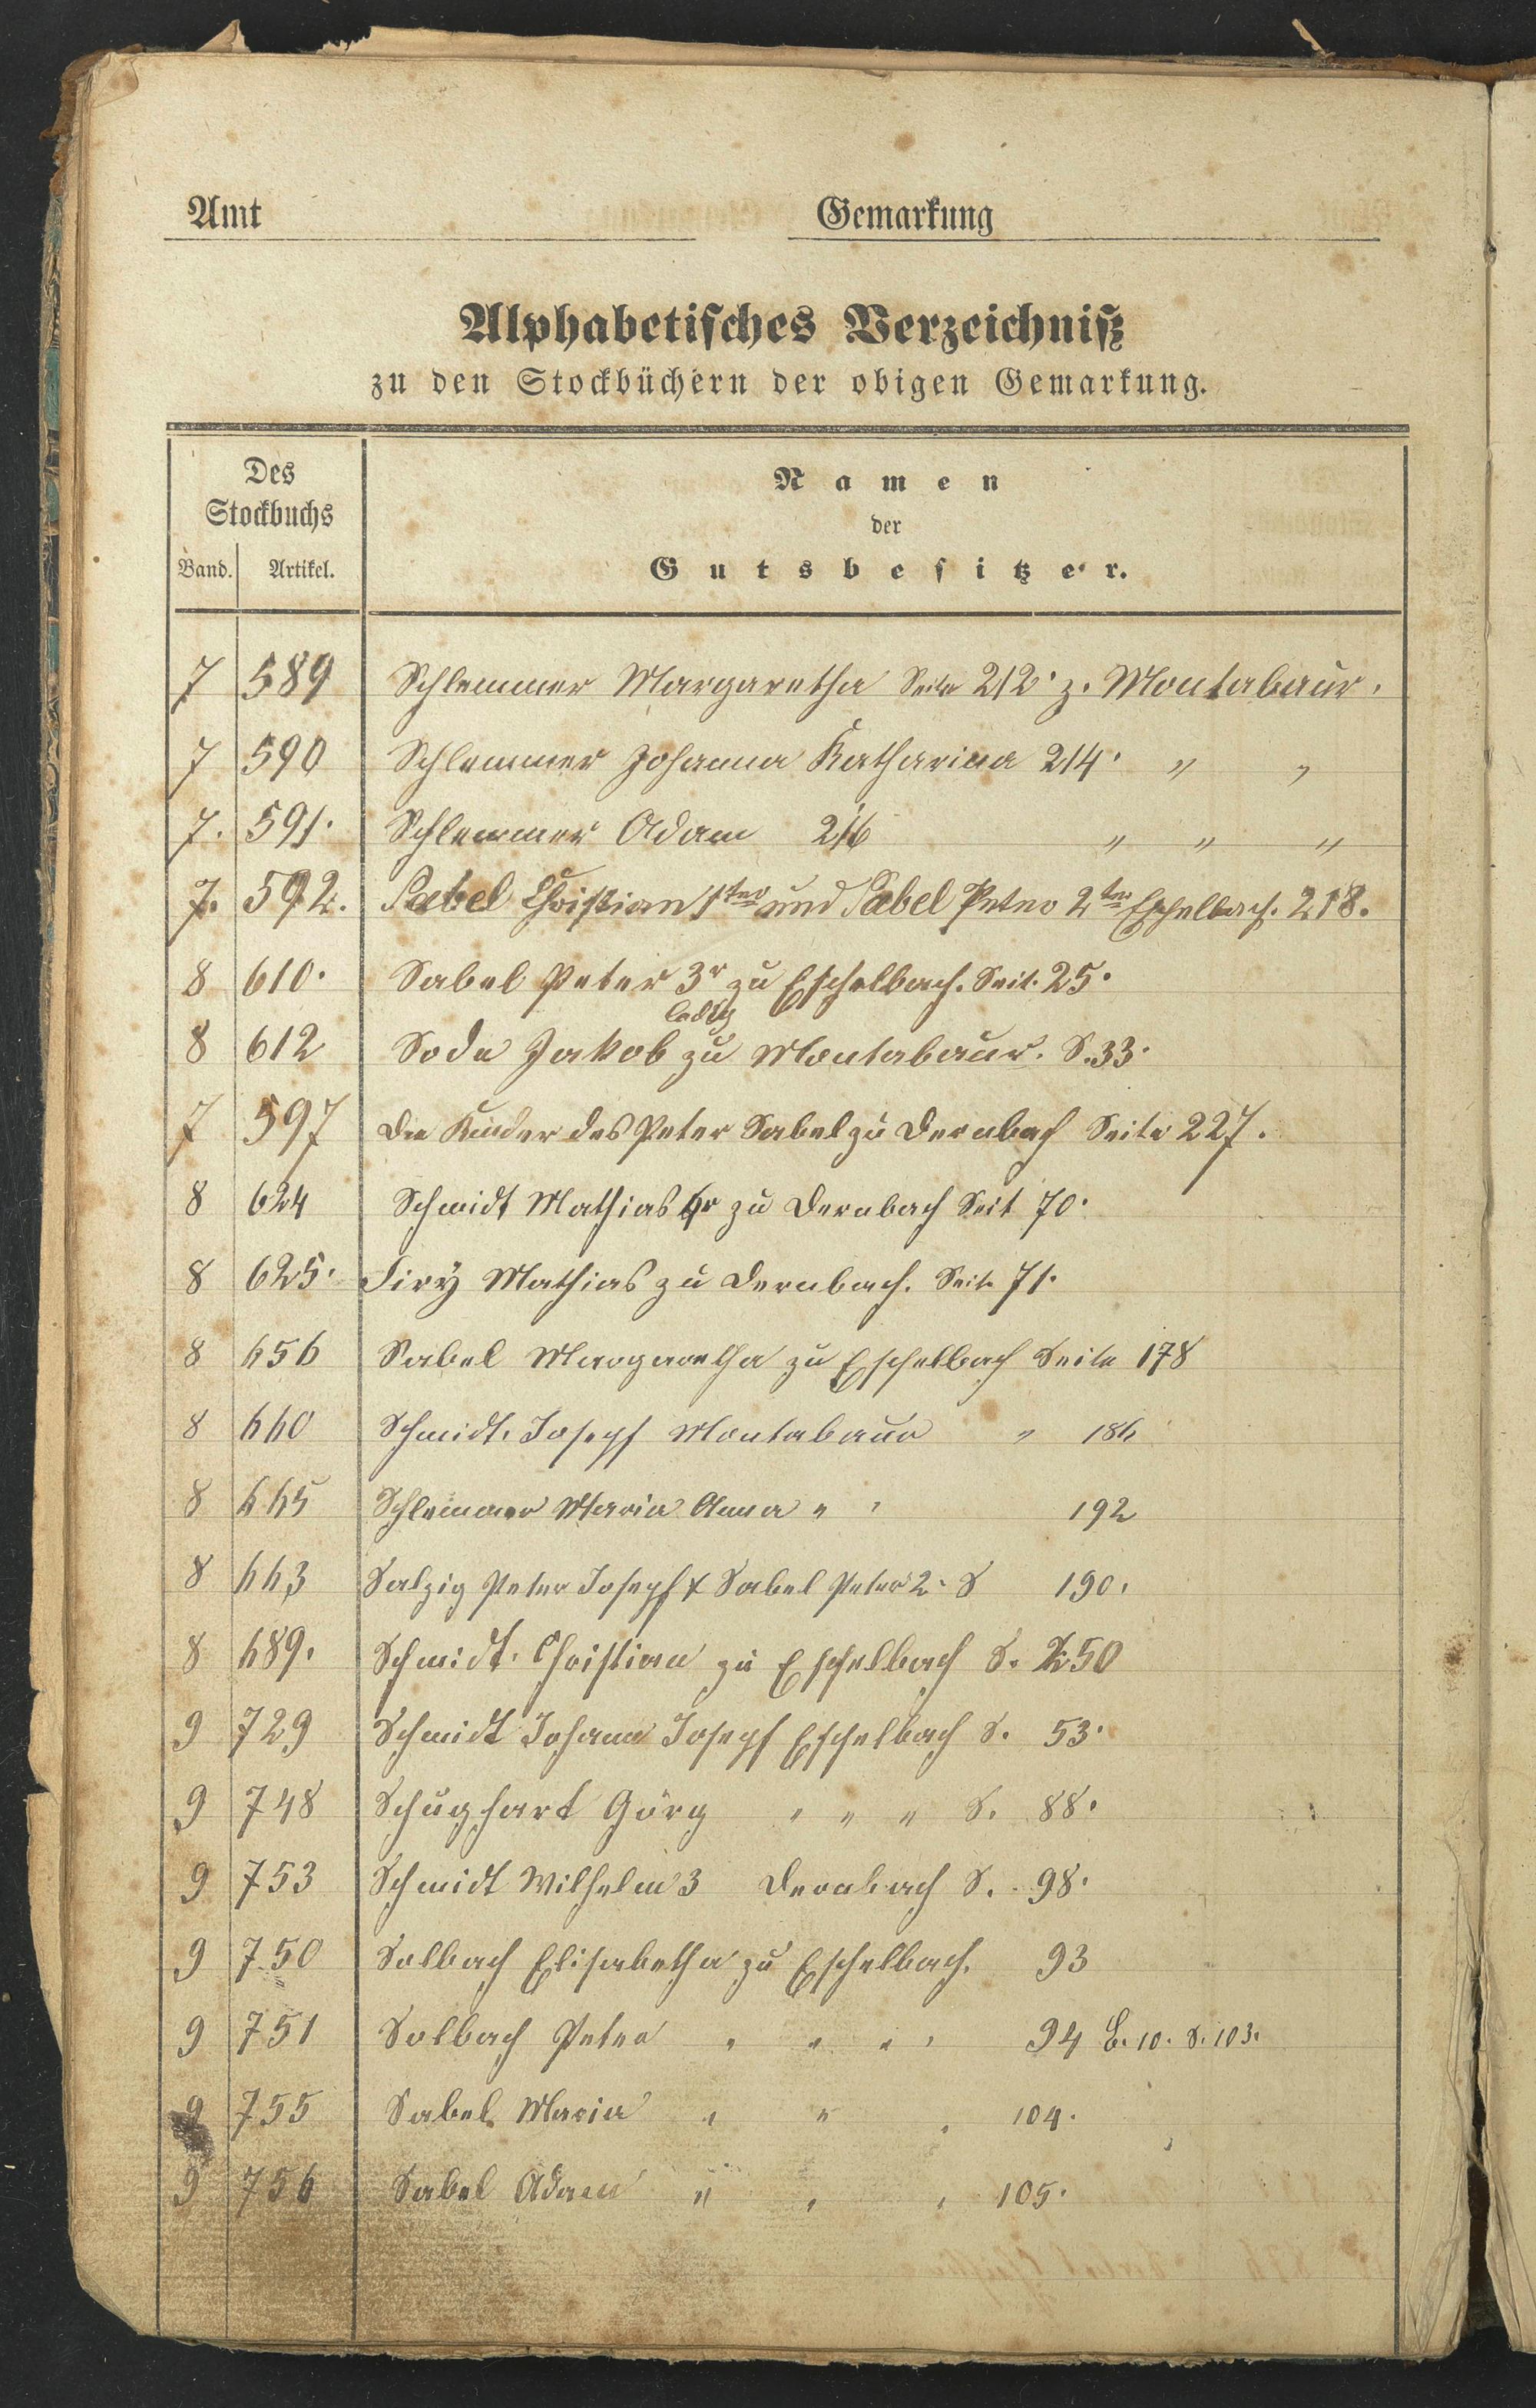 Amt Gemarkung
Alphabetisches Verzeichniß
zu den Stockbüchern der obigen Gemarkung.
Des
Stockbuchs
Band. Artikel.
Namen
der
Gutsbesitzer.
7 589 Schlemmer Margaretha Seite 212. z. Montabaur.
7 590 Schlemmer Johanna Katharina 214. " "
7. 591. Schlemmer Adam 216 " " "
7. 592. Sabel Christian 1ter und Sabel Peter 2ter Eschelbach. 218.
8 610. Sabel Peter 3r zu Eschelbach. Seit. 25.
ledig
8 612 Sode Jakob zu Montabaur. S. 33.
7 597 Die Kinder des Peter Sabel zu Dernbach Seite 227.
8 624 Schmidt Mathias zu Dernbach Seit 70.
8 625. Mathias zu Dernbach. Seite 71.
8 656 Sabel Margaretha zu Eschelbach Seite 178
8 660 Schmidt. Joseph Montabaur " 186
8 665 Schlemmer Maria Anna " " 192
8 663 Salzig Peter Joseph & Sabel Peter 2. S 190.
8 689. Schmidt. Christian zu Eschelbach S. 250
9 729 Schmidt Johann Joseph Eschelbach S. 53.
9 748 Schughart Görg " " " S. 88.
9 753 Schmidt Wilhelm 3 Dernbach S. 98.
9 750 Solbach Elisabetha zu Eschelbach. 93
9 751 Solbach Peter " " " " 94 B. 10. S. 103.
9 755 Sabel Maria " " " 104.
9 756 Sabel Adam " " " 105.